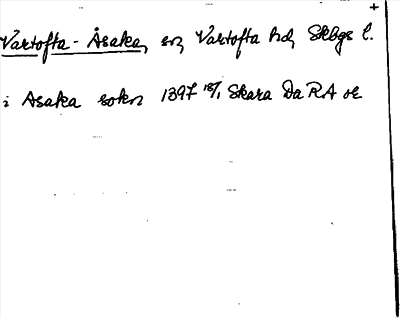 +
Vartofta-Åsaka, sn, Vartofta hd, Skbgs l.
i Asaka sokn 1397 18/1 Skara Da RA or